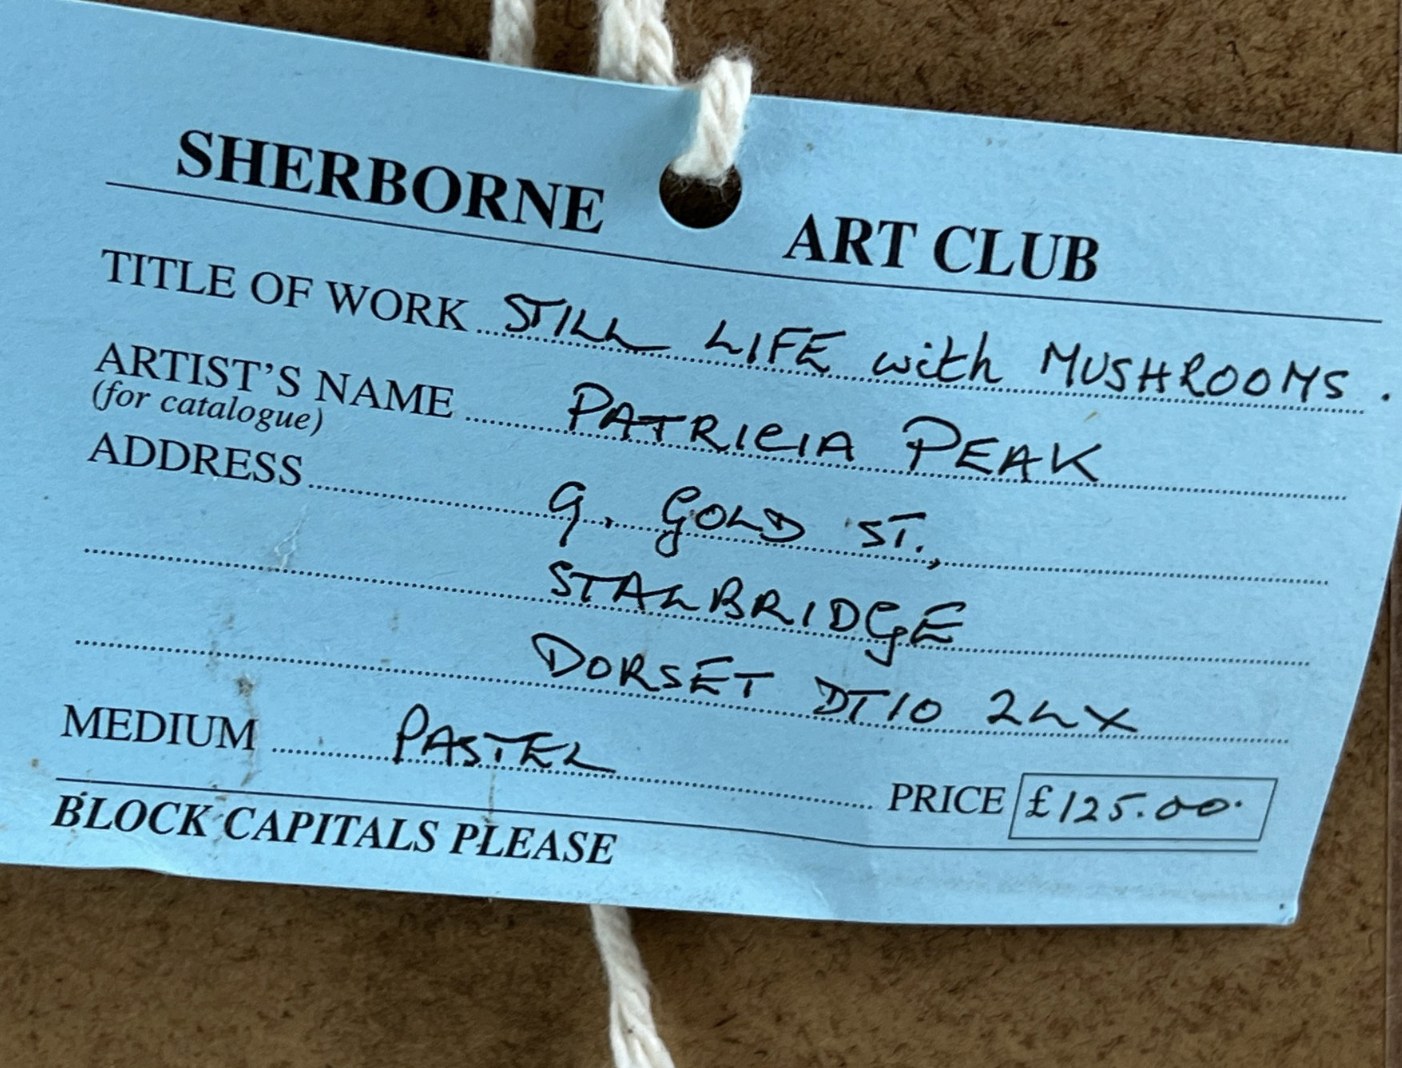 SHERBORNE ART CLUB
TITLE OF WORK STILL LIFE with MUSHROOMS.
ARTIST'S NAME PATRICIA PEAK
(for catalogue)
ADDRESS 9, GOLD ST.,
STALBRIDGE
DORSET DT10 2LX
MEDIUM PASTEL PRICE £125.00.
BLOCK CAPITALS PLEASE